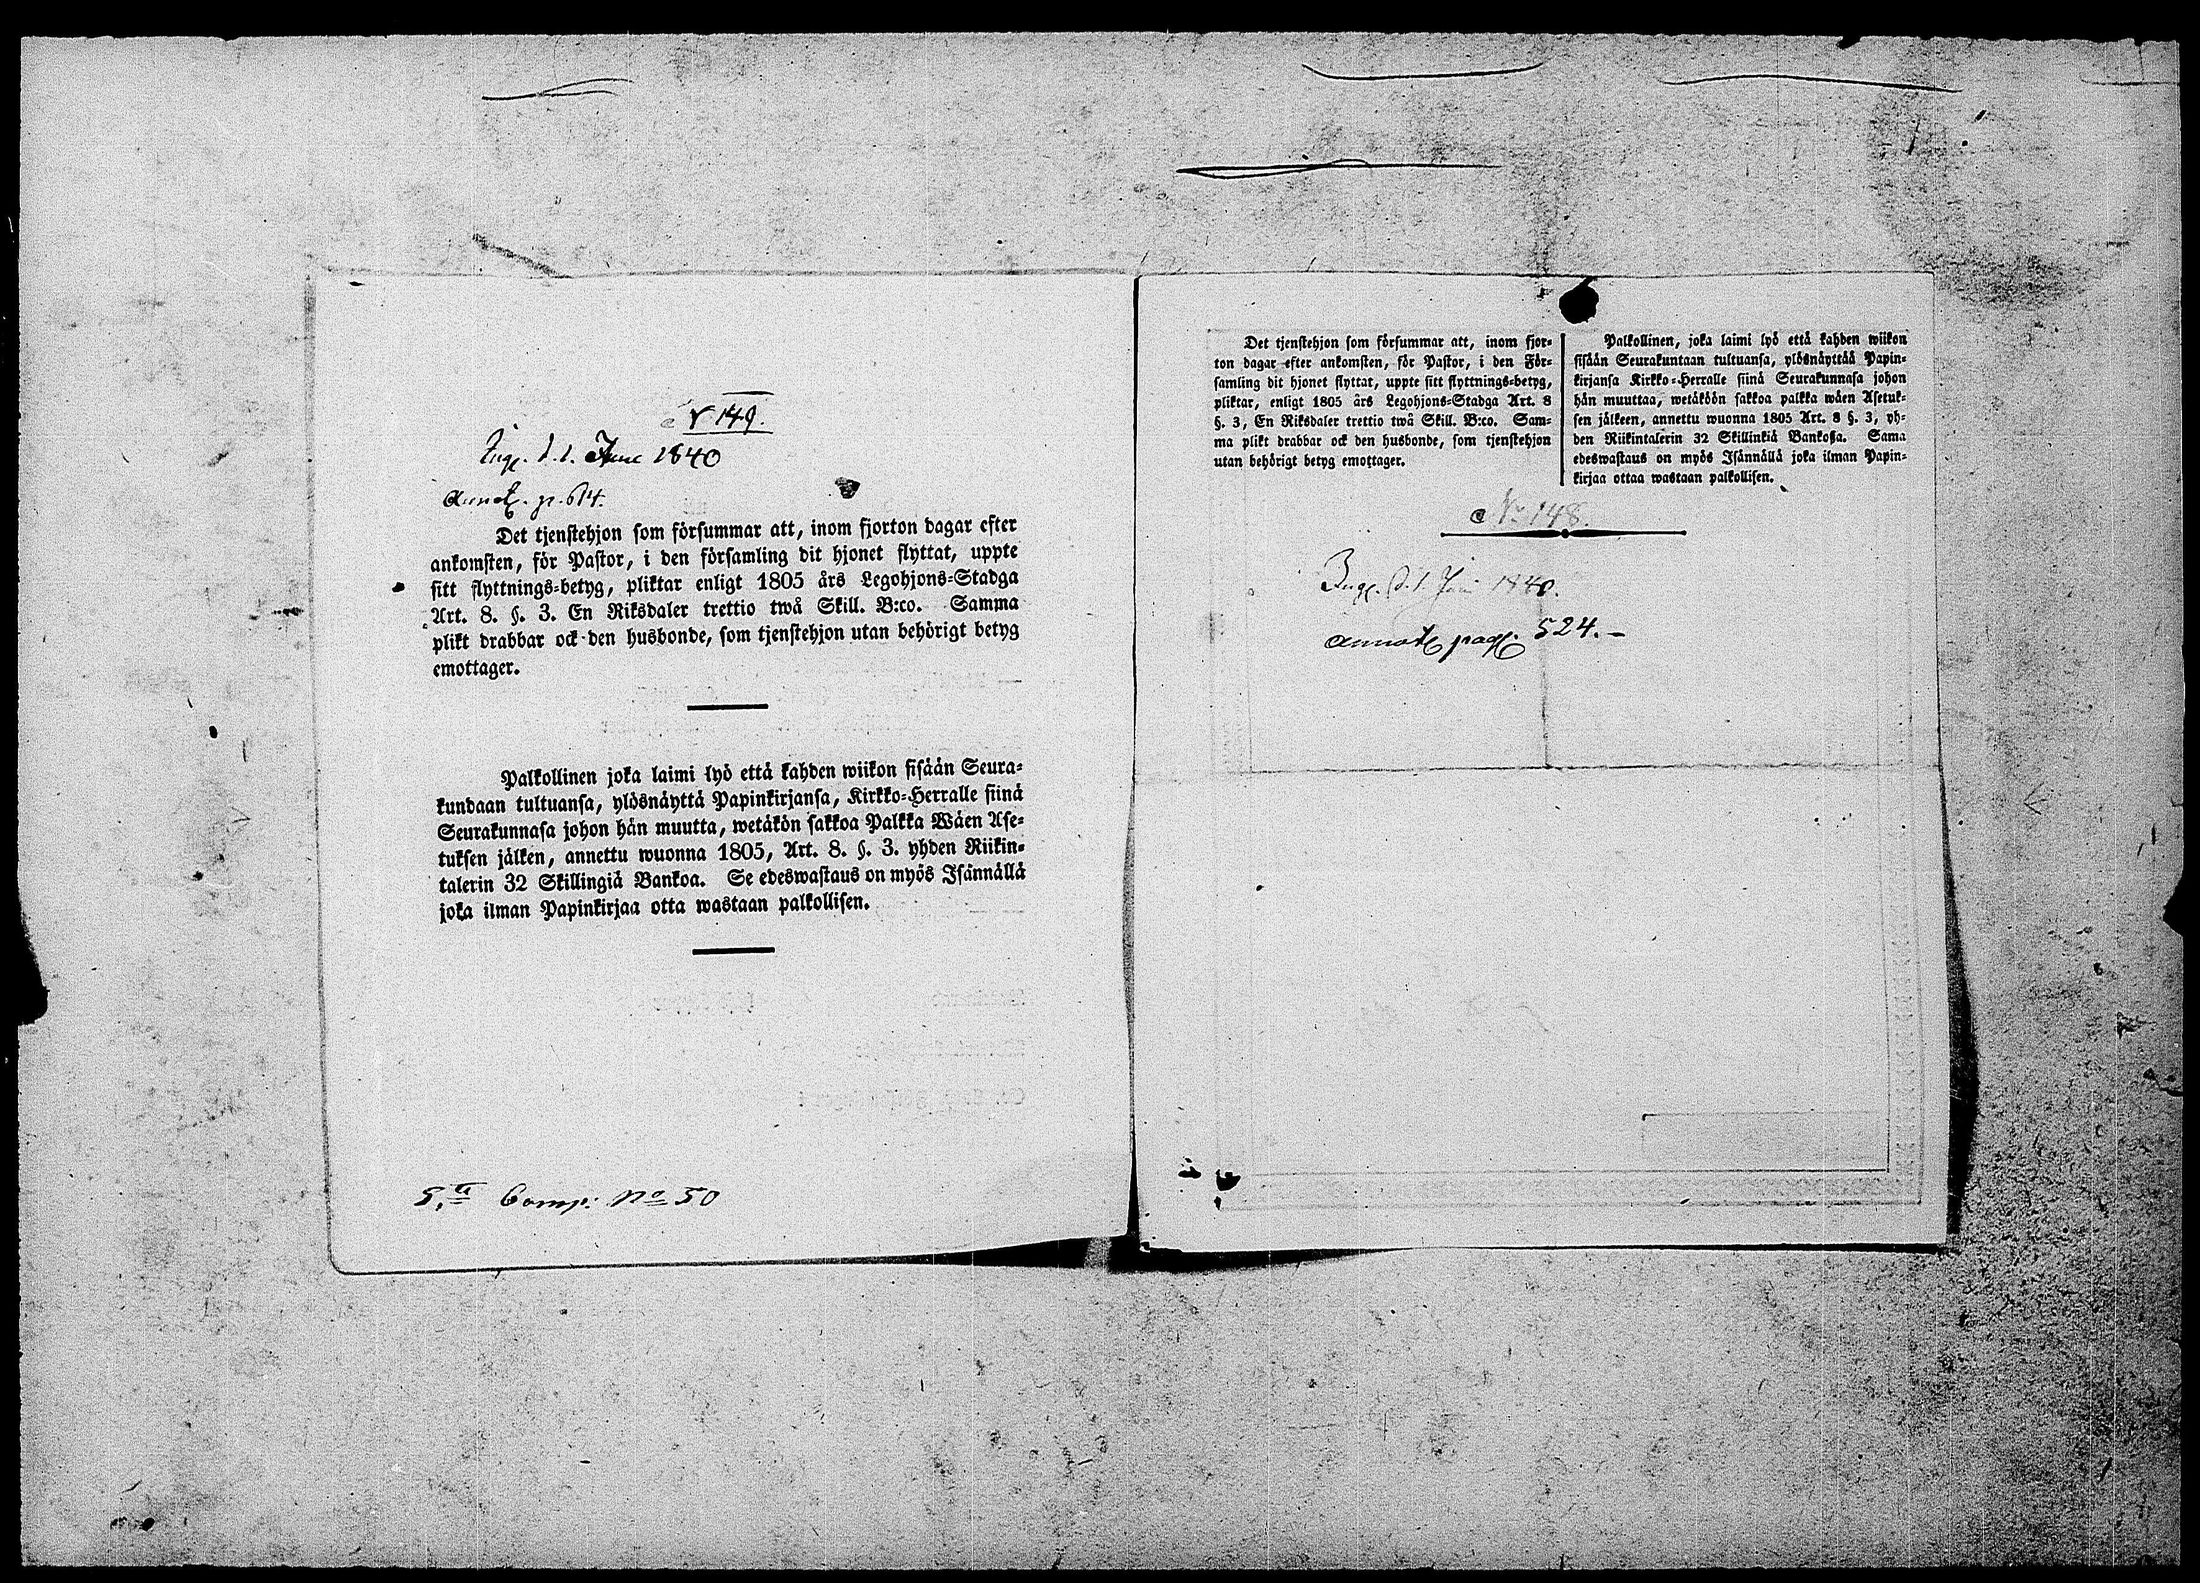 N 149.
Ing. d. 1. June 1840
Annot. p. 614.
Det tjenstehjon som försummar att, inom fjorton dagar efter
ankomsten, för Pastor, i den församling dit hjonet flyttat, uppte
sitt flyttnings-betyg, pliktar enligt 1805 års Legohjons-Stadga
Art. 8. §. 3. En Riksdaler trettio twå Skill. B:co. Samma
plikt drabbar ock den husbonde, som tjenstehjon utan behörigt betyg
emottager.
Palkollinen joka laimi lyö että kahden wiikon sisään Seura-
kundaan tultuansa, ylösnäyttä Papinkirjansa, Kirkko-Herralle siinä
Seurakunnasa johon hän muutta, wetäkön sakkoa Palkka Wäen Ase-
tuksen jälken, annettu wuonna 1805, Art. 8. §. 3. yhden Riikin-
talerin 32 Skillingiä Bankoa. Se edeswastaus on myös Isännällä
joka ilman Papinkirjaa otta wastaan palkollisen.
5,te Comp: No 50
Det tjenstehjon som försummar att, inom fjor-
ton dagar efter ankomsten, för Pastor, i den För-
samling dit hjonet flyttat, uppte sitt flyttnings-betyg,
pliktar, enligt 1805 års Legohjons-Stadga Art. 8
§. 3, En Riksdaler trettio twå Skill. B:co. Sam-
ma plikt drabbar ock den husbonde, som tjenstehjon
utan behörigt betyg emottager.
Palkollinen, joka laimi lyö että kahden wiikon
sisään Seurakuntaan tultuansa, ylösnäyttää Papin-
kirjansa Kirkko-Herralle siinä Seurakunnasa johon
hän muuttaa, wetäköön sakkoa palkka wäen Asetuk-
sen jälkeen, annettu wuonna 1805 Art. 8 §. 3, yh-
den Riikintalerin 32 Skillinkiä Bankossa. Sama
edeswastaus on myös Isännällä joka ilman Papin-
kirjaa ottaa wastaan palkollisen.
No 148.
Ing. d. 1. Juni 1840.
annot pag. 524.